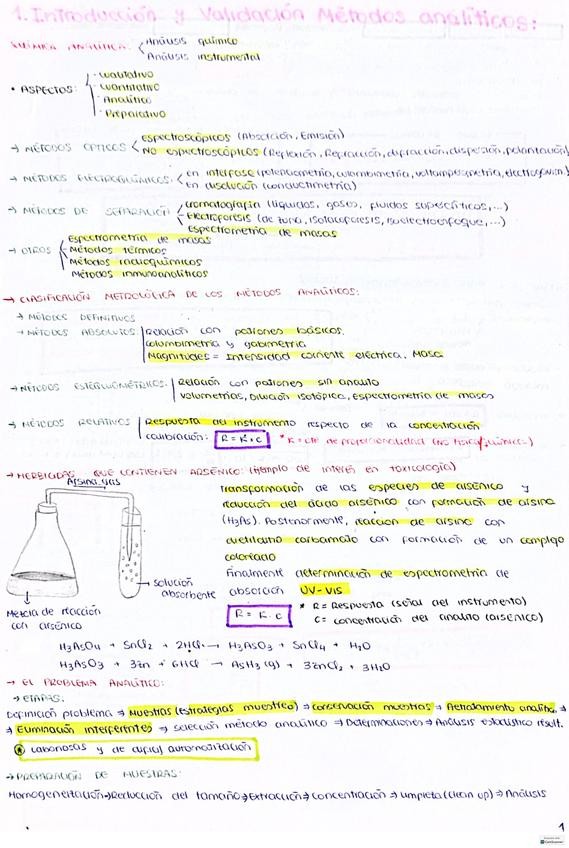 1. Introducción y Validación Métodos analíticos:
QUÍMICA ANALÍTICA: Análisis químico
Análisis instrumental
• ASPECTOS: - Cualitativo
- Cuantitativo
- Analítico
- Preparativo
→ MÉTODOS ÓPTICOS espectroscópicos (Absorción, Emisión)
NO espectroscópicos (Reflexión, Refracción, difracción, dispersión, polarización)
→ MÉTODOS ELECTROQUÍMICOS: en interfase (potenciometría, culombimetría, voltamperometría, electrogravim.)
en disolución (conductimetría)
→ MÉTODOS DE SEPARACIÓN cromatografía (líquidos, gases, fluidos supercríticos, ...)
Electroforesis (de zona, isotacoforesis, isoelectroenfoque, ...)
Espectrometría de masas
→ OTROS Espectrometría de masas
Métodos térmicos
Métodos radioquímicos
Métodos inmunoanalíticos
→ CLASIFICACIÓN METROLÓGICA DE LOS MÉTODOS ANALÍTICOS:
→ MÉTODOS DEFINITIVOS
→ MÉTODOS ABSOLUTOS: Relación con patrones básicos.
Culombimetría y gabimetria
Magnitudes = Intensidad corriente eléctrica, Masa
→ MÉTODOS ESTEQUIOMÉTRICOS: Relación con patrones sin analito
Volumetrías, Dilución isotópica, espectrometría de masas
→ MÉTODOS RELATIVOS: Respuesta del instrumento respecto de la concentración
calibración: R = K · c * K = cte de proporcionalidad (no física/química)
→ HERBICIDAS QUE CONTIENEN ARSÉNICO: (Ejemplo de interés en toxicología)
Arsina gas
Transformación de las especies de arsénico y
reducción del ácido arsénico con formación de arsina
(H₃As). Posteriormente, reacción de arsina con
dietilditio carbamato con formación de un complejo
coloreado
Finalmente determinación de espectrometría de
absorción UV-VIS
solución
absorbente
Mezcla de reacción
con arsénico
R = K · c
* R = Respuesta (señal del instrumento)
C = concentración del analito (arsénico)
H₃AsO₄ + SnCl₂ + 2HCl → H₃AsO₃ + SnCl₄ + H₂O
H₃AsO₃ + 3Zn + 6HCl → AsH₃(g) + 3ZnCl₂ + 3H₂O
→ EL PROBLEMA ANALÍTICO:
→ ETAPAS:
Definición problema → Muestras (estrategias muestreo) → conservación muestras → Pretratamiento analítico →
→ Eliminación interferentes → selección método analítico → Determinaciones → Análisis estadístico result.
* Laboriosas y de difícil automatización
→ PREPARACIÓN DE MUESTRAS:
Homogeneización → Reducción del tamaño → Extracción → Concentración → Limpieza (clean up) → Análisis
1
CamScanner